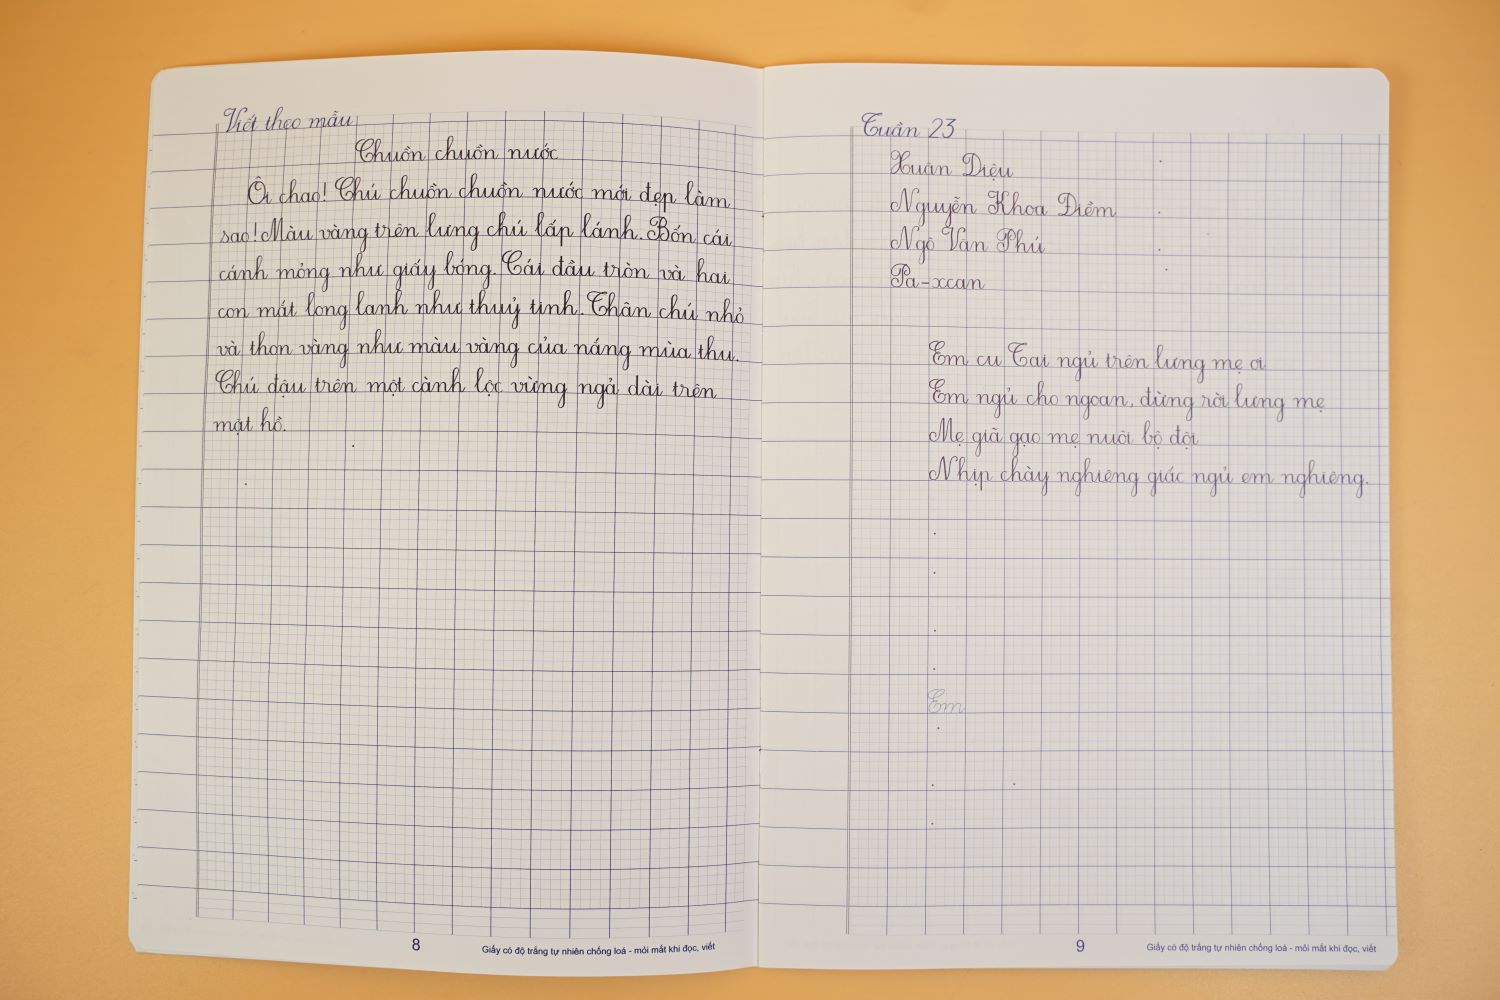 Viết theo mẫu
Chuồn chuồn nước
Ôi chao! Chú chuồn chuồn nước mới đẹp làm
sao! Màu vàng trên lưng chú lấp lánh. Bốn cái
cánh mỏng như giấy bóng. Cái đầu tròn và hai
con mắt long lanh như thuỷ tinh. Thân chú nhỏ
và thon vàng như màu vàng của nắng mùa thu.
Chú đậu trên một cành lộc vừng ngả dài trên
mặt hồ.
8
Giấy có độ trắng tự nhiên chống loá - mỏi mắt khi đọc, viết
Tuần 23
Xuân Diệu
Nguyễn Khoa Điềm
Ngô Văn Phú
Pa-xcan
Em cu Tai ngủ trên lưng mẹ ơi
Em ngủ cho ngoan, đừng rời lưng mẹ
Mẹ giã gạo mẹ nuôi bộ đội
Nhịp chày nghiêng giấc ngủ em nghiêng.
Em
9
Giấy có độ trắng tự nhiên chống loá - mỏi mắt khi đọc, viết